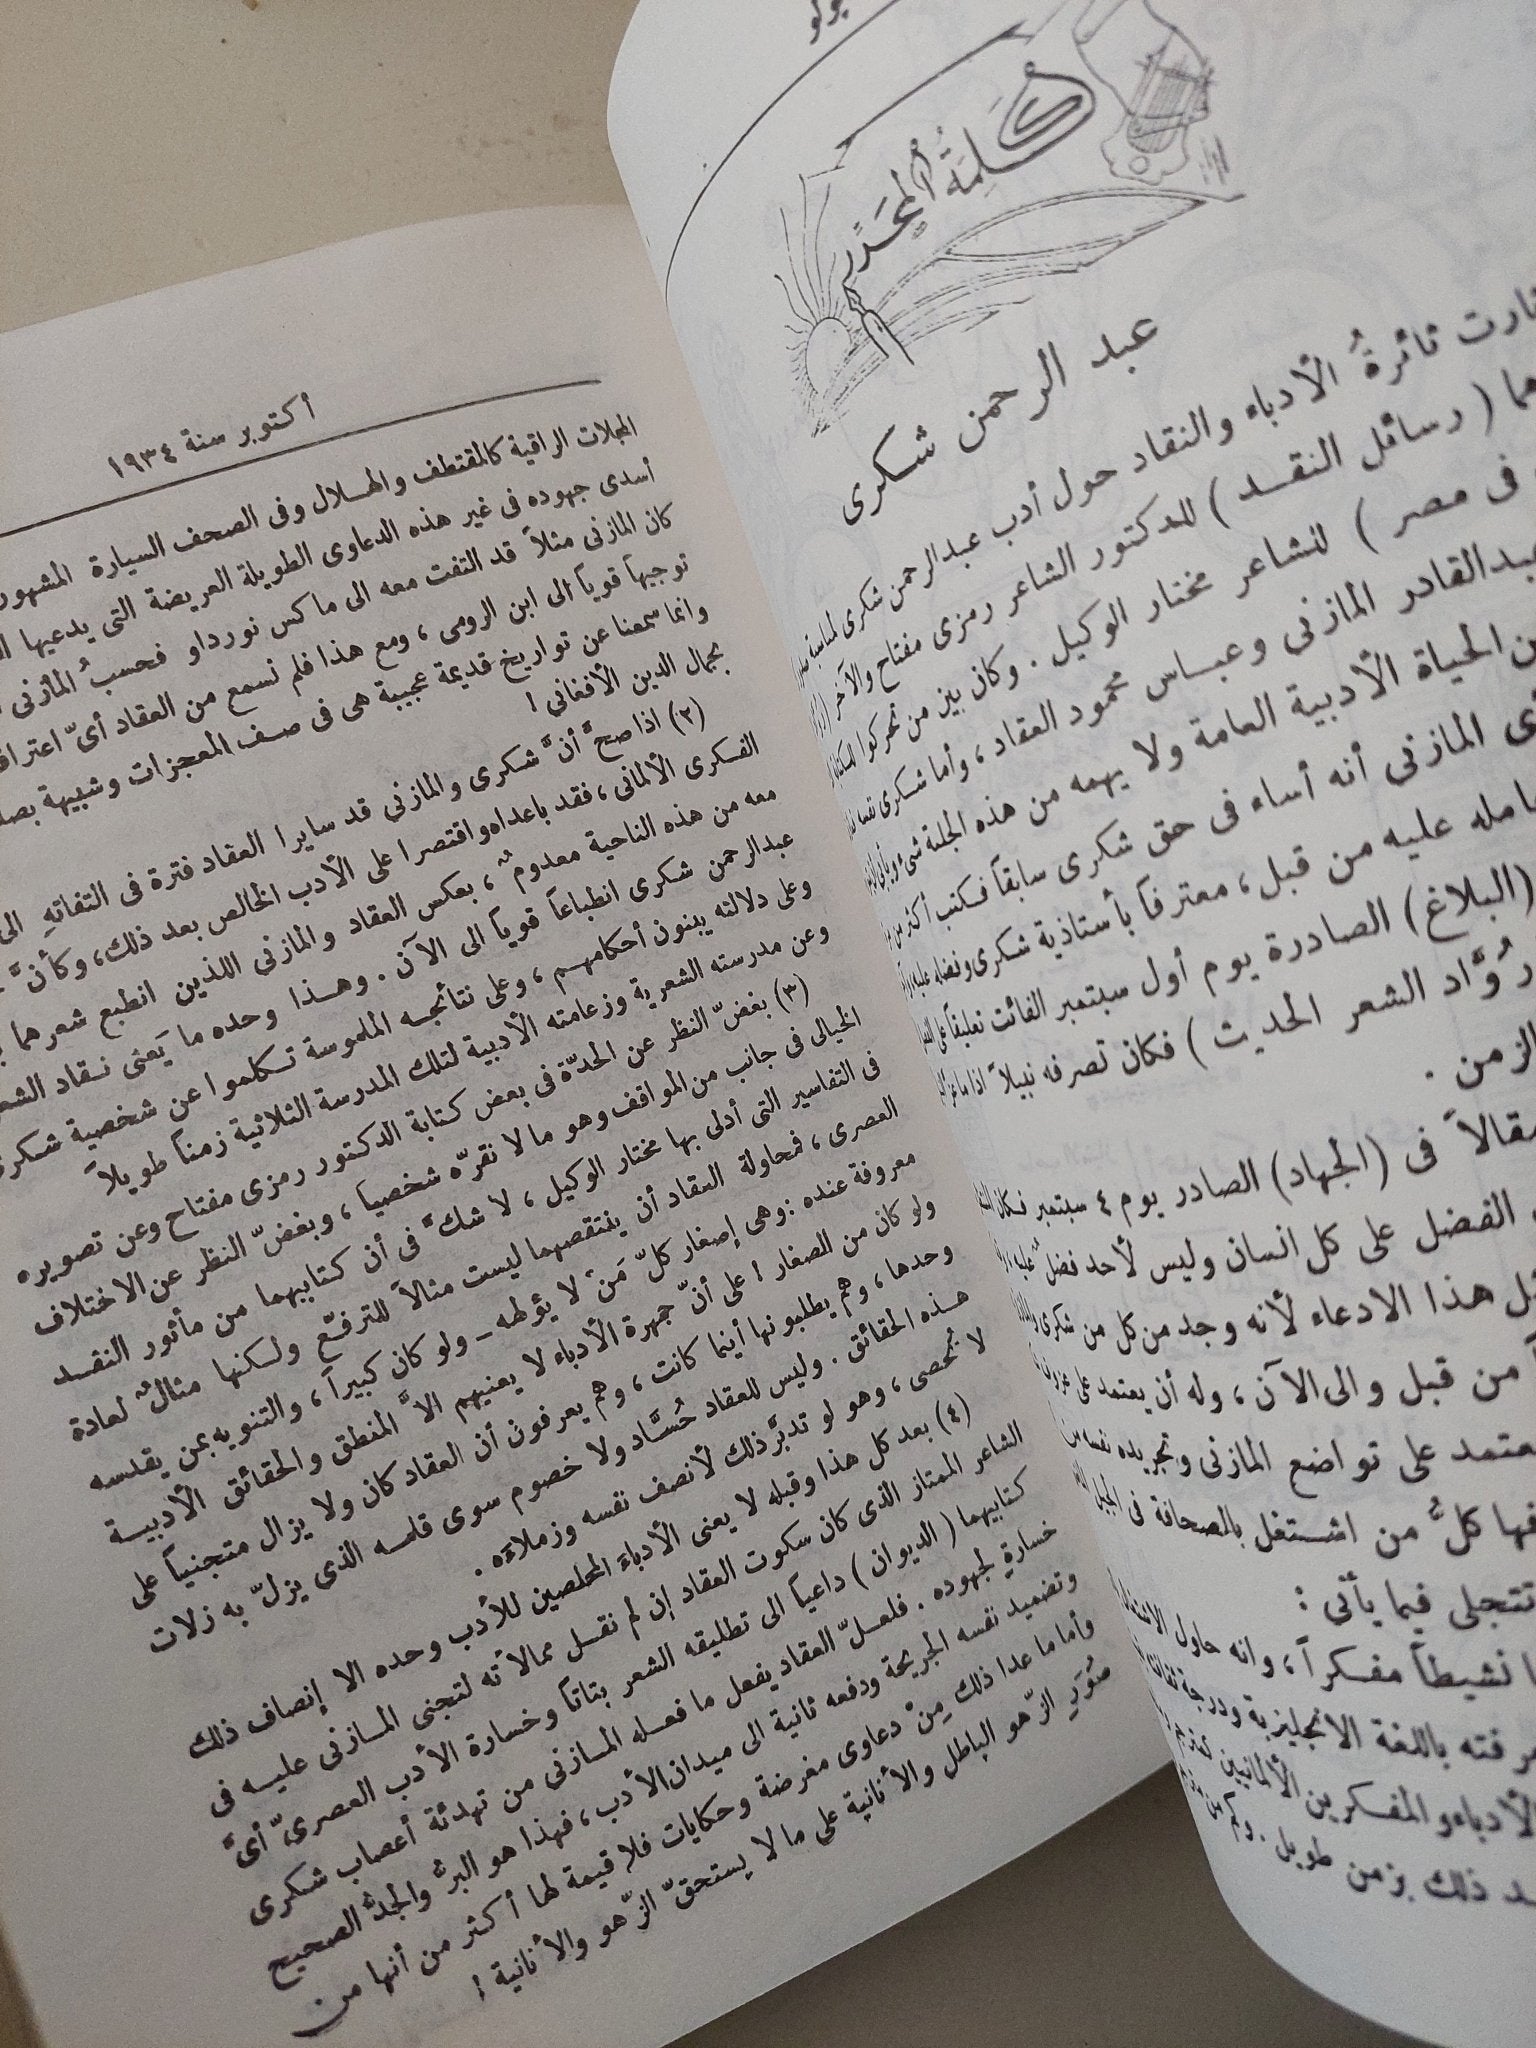 كَلِمَةُ المُحَرِّر
عبد الرحمن شكرى
ثارت ثائرةُ الأدباء والنقاد حول أدب عبدالرحمن شكرى لمناسبة
( رسائل النقد ) للدكتور الشاعر رمزى مفتاح والآخر
فى مصر ) للشاعر مختار الوكيل . وكان بين من تحركوا للكتابة
عبدالقادر المازنى وعباس محمود العقاد ، وأما شكرى نفسه
الحياة الأدبية العامة ولا يهمه من هذه الجلبة شىء
المازنى أنه أساء فى حق شكرى سابقاً فكتب أكثر من
عليه من قبل ، معترفاً بأستاذية شكرى وفضله عليه
(البلاغ) الصادرة يوم أول سبتمبر الفائت تعليقاً على
رُوَّاد الشعر الحديث ) فكان تصرفه نبيلاً اذا ما
الزمن .
مقالاً فى (الجهاد) الصادر يوم ٤ سبتمبر فكان
الفضل على كل انسان وليس لأحد فضلٌ عليه
هذا الادعاء لأنه وجد من كل من شكرى
من قبل والى الآن ، وله أن يعتمد على
يعتمد على تواضع المازنى وتجريده نفسه من
كلُّ من اشتغل بالصحافة فى الجيل
تتجلى فيما يأتى :
نشيطاً مفكراً ، وانه حاول
باللغة الانجليزية ودرجة
الأدباء والمفكرين الألمانيين
ذلك بزمن طويل . وكم من
أكتوبر سنة ١٩٣٤
المجلات الراقية كالمقتطف والهلال وفى الصحف السيارة
أسدى جهوده فى غير هذه الدعاوى الطويلة العريضة التى يدعيها
كان المازنى مثلاً قد التفت معه الى ماكس نورداو فحسبُ المازنى
توجيهاً قوياً الى ابن الرومى ، ومع هذا فلم نسمع من العقاد أىّ
وانما سمعنا عن تواريخ قديمة عجيبة هى فى صف المعجزات وشبيهة
بجمال الدين الأفغانى !
(٢) اذا صحَّ أنَّ شكرى والمازنى قد سايرا العقاد فترة فى التفاتهِ الى
الفكرى الألمانى ، فقد باعداه واقتصرا على الأدب الخالص بعد ذلك ، وكأنَّ
معه من هذه الناحية معدومٌ ، بعكس العقاد والمازنى اللذين انطبع شعرهما
عبدالرحمن شكرى انطباعاً قوياً الى الآن . وهذا وحده ما يَعنى نقاد
وعلى دلالته يبنون أحكامهم ، وعلى نتائجه الملموسة تكلموا عن شخصية شكرى
وعن مدرسته الشعرية وزعامته الأدبية لتلك المدرسة الثلاثية زمناً طويلاً
(٣) بغضّ النظر عن الحدّة فى بعض كتابة الدكتور رمزى مفتاح وعن تصويره
الخيالى فى جانب من المواقف وهو ما لا نقرّه شخصيا ، وبغضّ النظر عن الاختلاف
فى التفاسير التى أدلى بها مختار الوكيل ، لا شكَّ فى أن كتابيهما من مأثور النقد
العصرى ، فمحاولة العقاد أن ينتقصهما ليست مثالاً للترفع ولكنها مثالٌ لعادة
معروفة عنده : وهى إصغار كلّ مَن لا يؤلهه - ولو كان كبيراً ، والتنويه بمن يقدسه
ولو كان من الصغار ! على أنّ جمهرة الأدباء لا يعنيهم الاَّ المنطق والحقائق الأدبية
وحدها ، وهم يطلبونها أينما كانت ، وهم يعرفون أن العقاد كان ولا يزال متجنياً على
هذه الحقائق . وليس للعقاد حُسَّاد ولا خصوم سوى قلمه الذى يزلّ به زلات
لا تُحصى ، وهو لو تدبَّر ذلك لأنصف نفسه وزملاءَه .
(٤) بعد كل هذا وقبله لا يعنى الأدباءَ المخلصين للأدب وحده الا إنصاف ذلك
الشاعر الممتاز الذى كان سكوت العقاد إن لم نقل ممالأته لتجنى المازنى عليه فى
كتابيهما ( الديوان ) داعياً الى تطليقه الشعر بتاتاً وخسارة الأدب العصرىّ أىَّ
خسارةٍ لجهوده . فلعلّ العقاد يفعل ما فعله المازنى من تهدئة أعصاب شكرى
وتضميد نفسه الجريحة ودفعه ثانية الى ميدان الأدب ، فهذا هو البرُّ والجدُّ الصحيح
وأما ما عدا ذلك مِنْ دعاوى مغرضة وحكايات فلا قيمة لها أكثر من أنها من
صُوَرِ الزّهو الباطل والأنانية على ما لا يستحقّ الزّهو والأنانية !